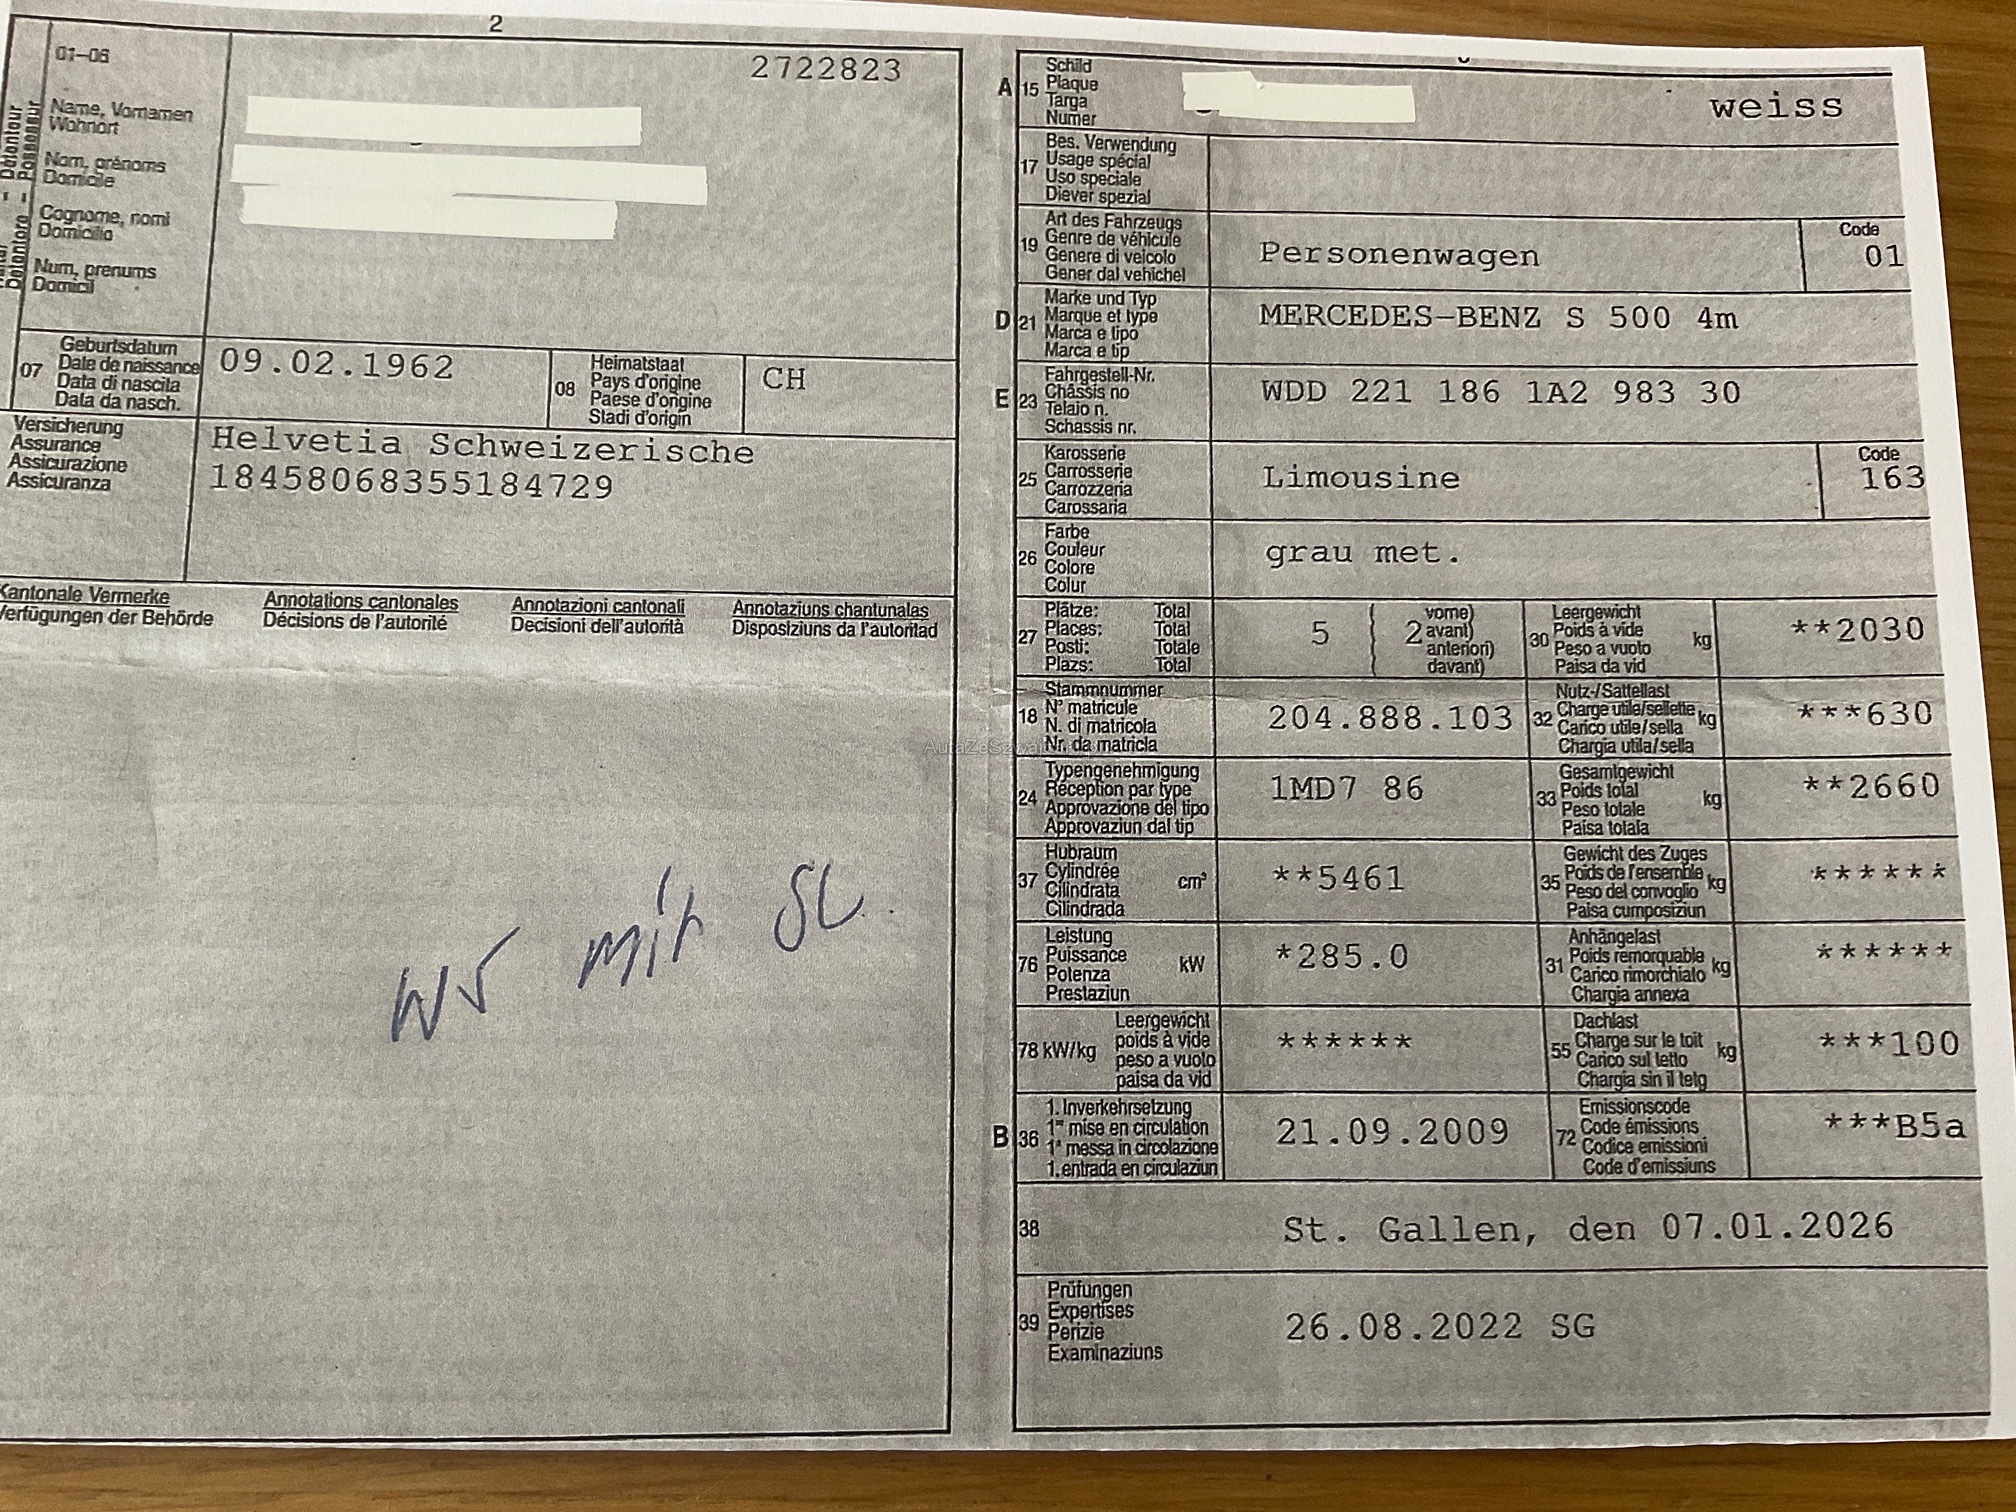 2
01-06
2722823
Name, Vornamen
Wohnort
Nom, prénoms
Domicile
Cognome, nomi
Domicilio
Num, prenums
Domicil
07
Geburtsdatum
Date de naissance
Data di nascita
Data da nasch.
09.02.1962
08
Heimatstaat
Pays d'origine
Paese d'origine
Stadi d'origin
CH
Versicherung
Assurance
Assicurazione
Assicuranza
Helvetia Schweizerische
18458068355184729
Kantonale Vermerke
Verfügungen der Behörde
Annotations cantonales
Décisions de l'autorité
Annotazioni cantonali
Decisioni dell'autorità
Annotaziuns chantunales
Disposiziuns da l'autoritad
mit SL
A 15
Schild
Plaque
Targa
Numer
weiss
17
Bes. Verwendung
Usage spécial
Uso speciale
Diever spezial
19
Art des Fahrzeugs
Genre de véhicule
Genere di veicolo
Gener dal vehichel
Personenwagen
Code
01
D 21
Marke und Typ
Marque et type
Marca e tipo
Marca e tip
MERCEDES-BENZ S 500 4m
E 23
Fahrgestell-Nr.
Châssis no
Telaio n.
Schassis nr.
WDD 221 186 1A2 983 30
25
Karosserie
Carrosserie
Carrozzeria
Carossaria
Limousine
Code
163
26
Farbe
Couleur
Colore
Colur
grau met.
27
Plätze: Total
Places: Total
Posti: Totale
Plazs: Total
5 ( 2
vorne)
avant)
anteriori)
davant)
30
Leergewicht
Poids à vide
Peso a vuoto
Paisa da vid
kg
**2030
18
Stammnummer
N° matricule
N. di matricola
Nr. da matricla
204.888.103
32
Nutz-/Sattellast
Charge utile/sellette
Carico utile/sella
Chargia utila/sella
kg
***630
24
Typengenehmigung
Réception par type
Approvazione del tipo
Approvaziun dal tip
1MD7 86
33
Gesamtgewicht
Poids total
Peso totale
Paisa totala
kg
**2660
37
Hubraum
Cylindrée
Cilindrata
Cilindrada
cm³
**5461
35
Gewicht des Zuges
Poids de l'ensemble
Peso del convoglio
Paisa cumposiziun
kg
******
76
Leistung
Puissance
Potenza
Prestaziun
kW
*285.0
31
Anhängelast
Poids remorquable
Carico rimorchiato
Chargia annexa
kg
******
78 kW/kg
Leergewicht
poids à vide
peso a vuoto
paisa da vid
******
55
Dachlast
Charge sur le toit
Carico sul tetto
Chargia sin il tetg
kg
***100
B 36
1. Inverkehrsetzung
1re mise en circulation
1a messa in circolazione
1. entrada en circulaziun
21.09.2009
72
Emissionscode
Code émissions
Codice emissioni
Code d'emissiuns
***B5a
38
St. Gallen, den 07.01.2026
39
Prüfungen
Expertises
Perizie
Examinaziuns
26.08.2022 SG